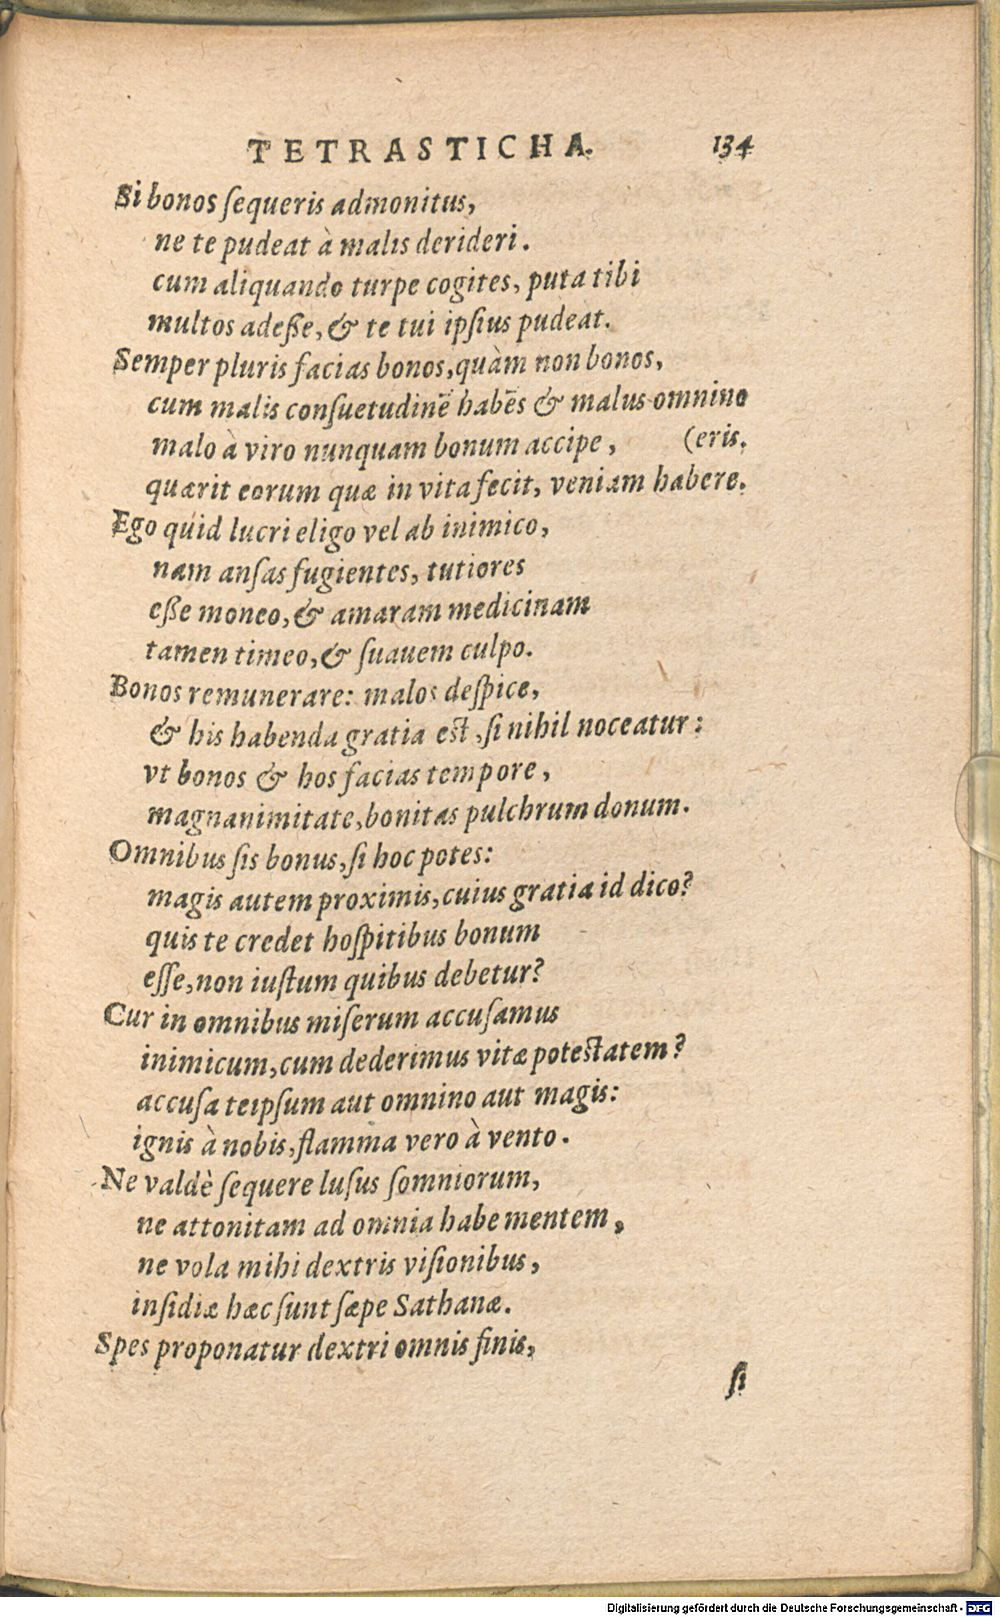 TETRASTICHA. 134
Si bonos ſequeris admonitus,
ne te pudeat à malis derideri.
cum aliquando turpe cogites, puta tibi
multos adeße, & te tui ipſius pudeat.
Semper pluris facias bonos, quàm non bonos,
cum malis conſuetudinē habēs & malus omnino
malo à viro nunquam bonum accipe, (eris.
quærit eorum quæ in vita fecit, veniam habere.
Ego quid lucri eligo vel ab inimico,
nam anſas fugientes, tutiores
eße moneo, & amaram medicinam
tamen timeo, & ſuauem culpo.
Bonos remunerare: malos deſpice,
& his habenda gratia eſt, ſi nihil noceatur:
vt bonos & hos facias tempore,
magnanimitate, bonitas pulchrum donum.
Omnibus ſis bonus, ſi hoc potes:
magis autem proximis, cuius gratia id dico?
quis te credet hoſpitibus bonum
eſſe, non iuſtum quibus debetur?
Cur in omnibus miſerum accuſamus
inimicum, cum dederimus vitæ poteſtatem?
accuſa teipſum aut omnino aut magis:
ignis à nobis, flamma vero à vento.
Ne valdè ſequere luſus ſomniorum,
ne attonitam ad omnia habe mentem,
ne vola mihi dextris viſionibus,
inſidiæ hæc ſunt ſæpe Sathanæ.
Spes proponatur dextri omnis finis,
ſi
Digitalisierung gefördert durch die Deutsche Forschungsgemeinschaft - DFG